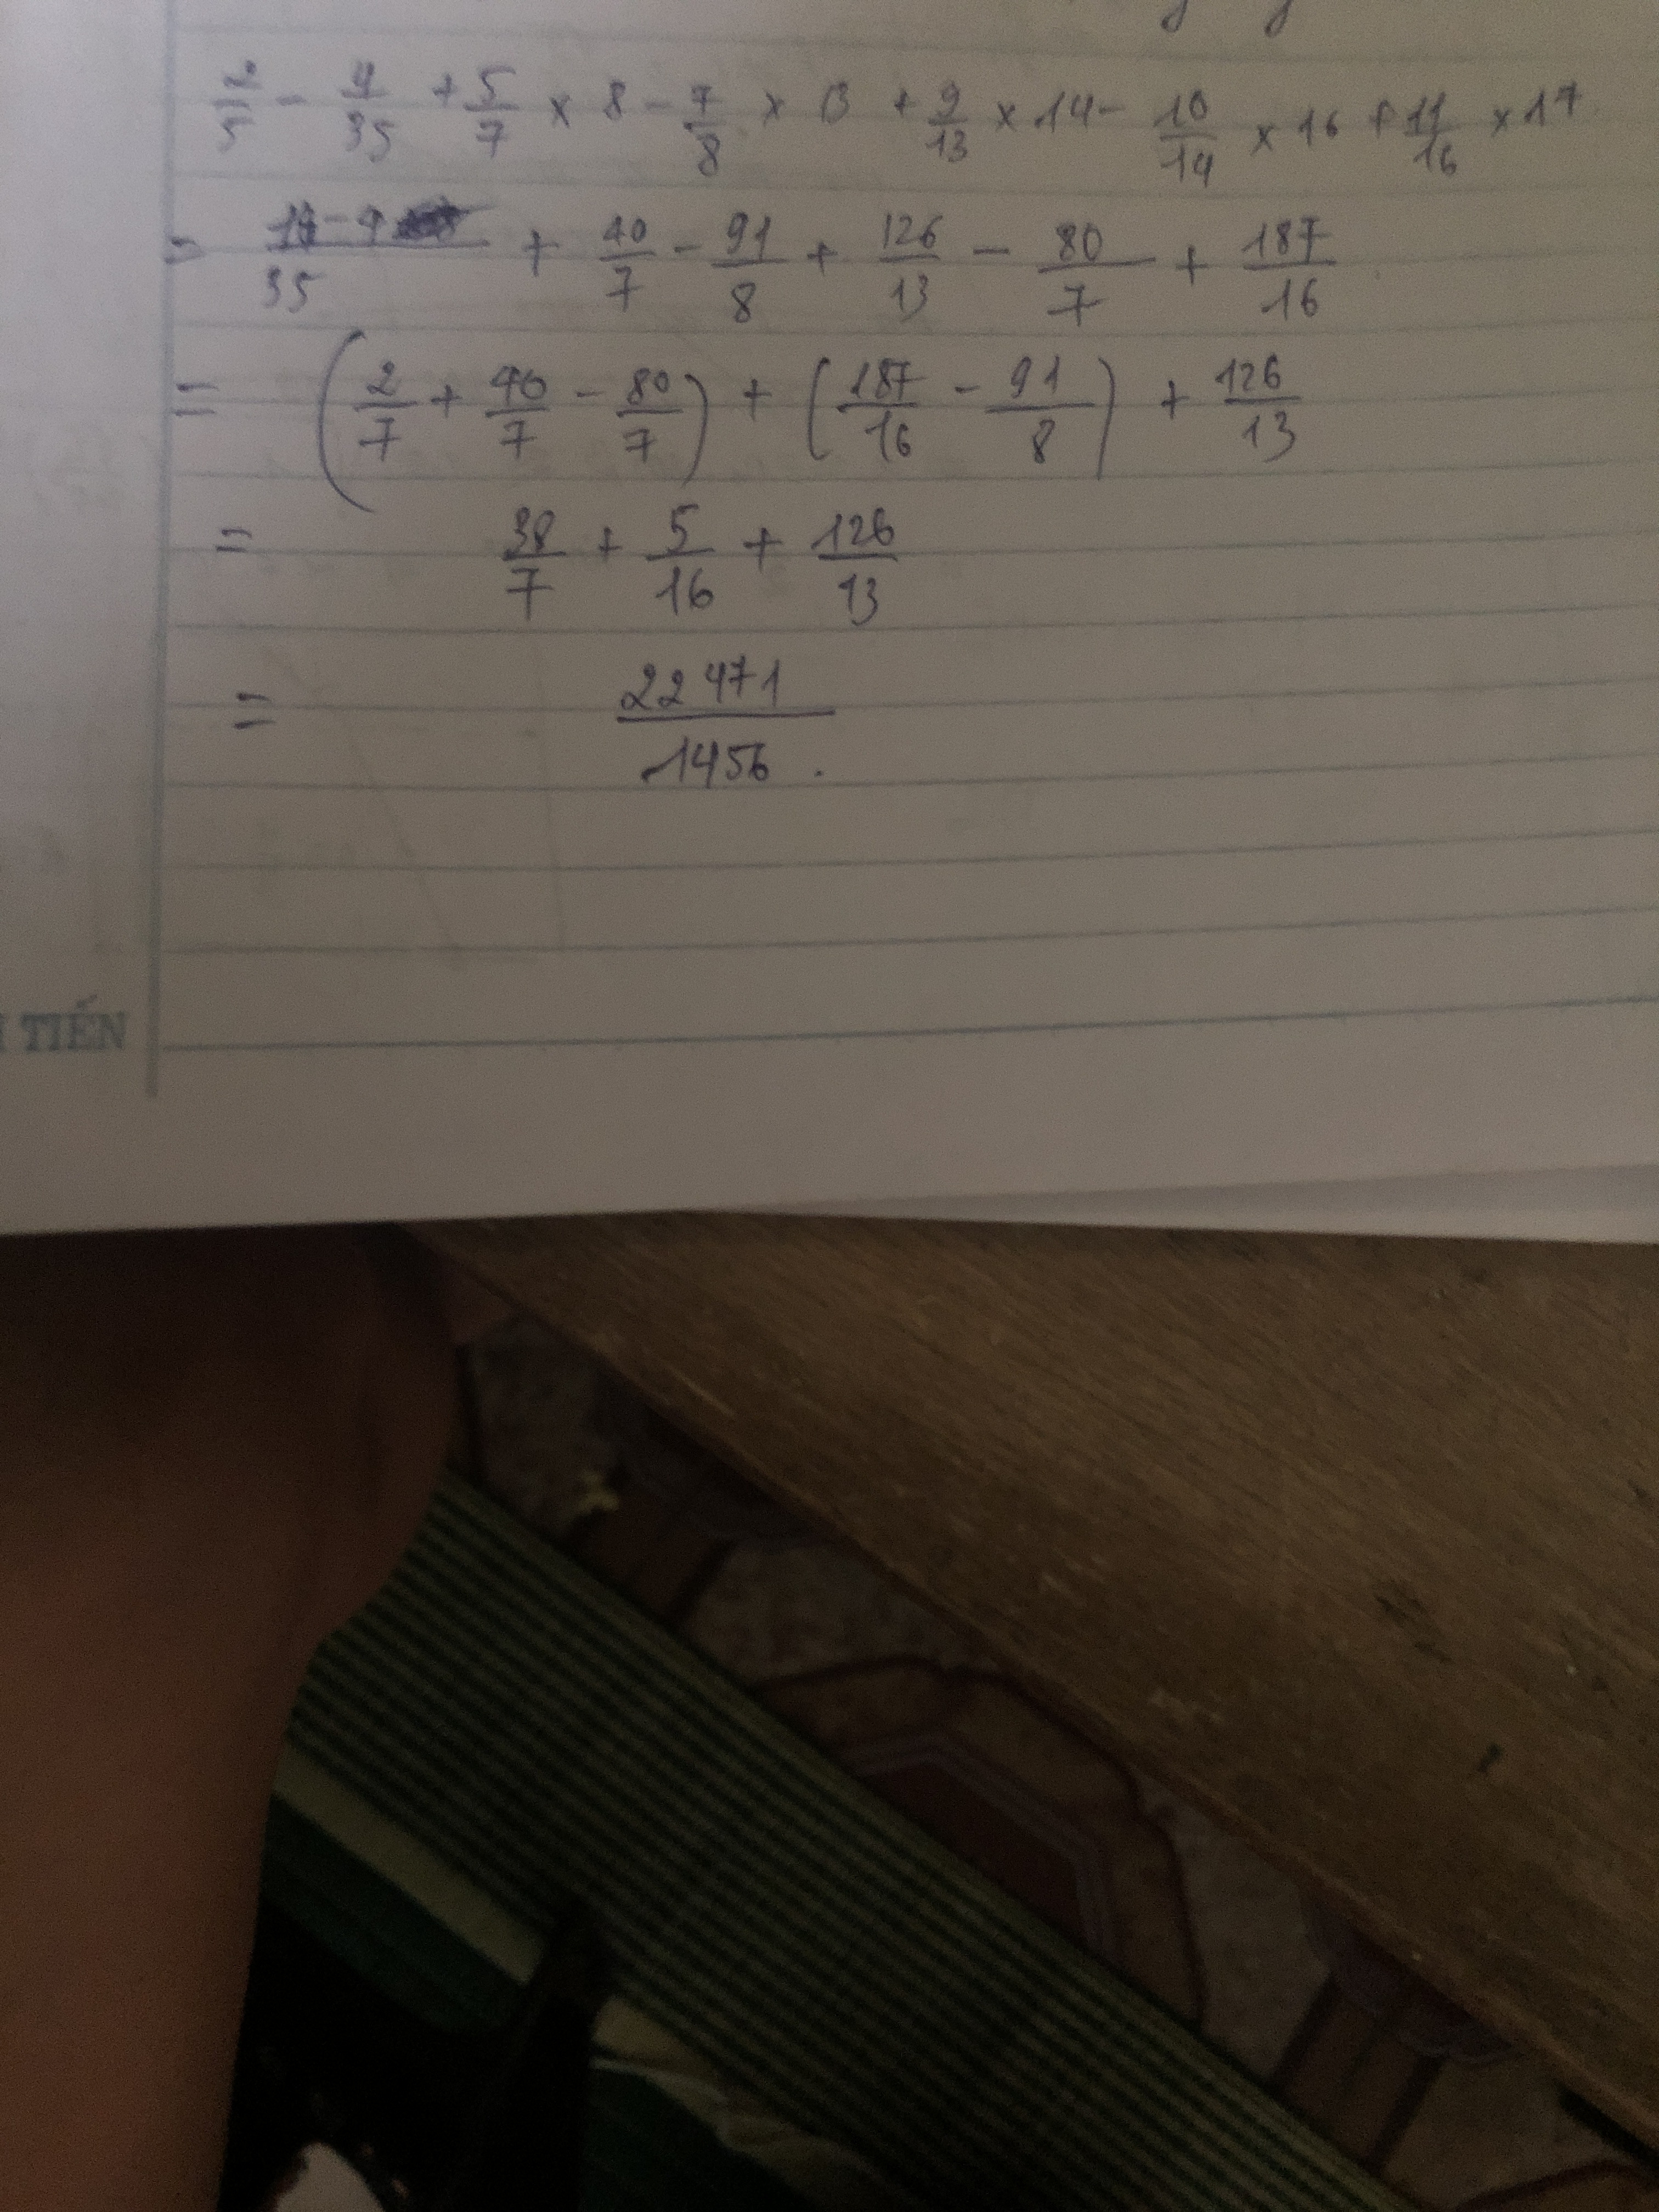 2/5 - 4/35 + 5/7 × 8 - 7/8 × 13 + 9/13 × 14 - 10/14 × 16 + 11/16 × 17
= 14 - 4/35 + 40/7 - 91/8 + 126/13 - 80/7 + 187/16
= (2/7 + 40/7 - 80/7) + (187/16 - 91/8) + 126/13
= 38/7 + 5/16 + 126/13
= 22471/1456 .
TIẾN